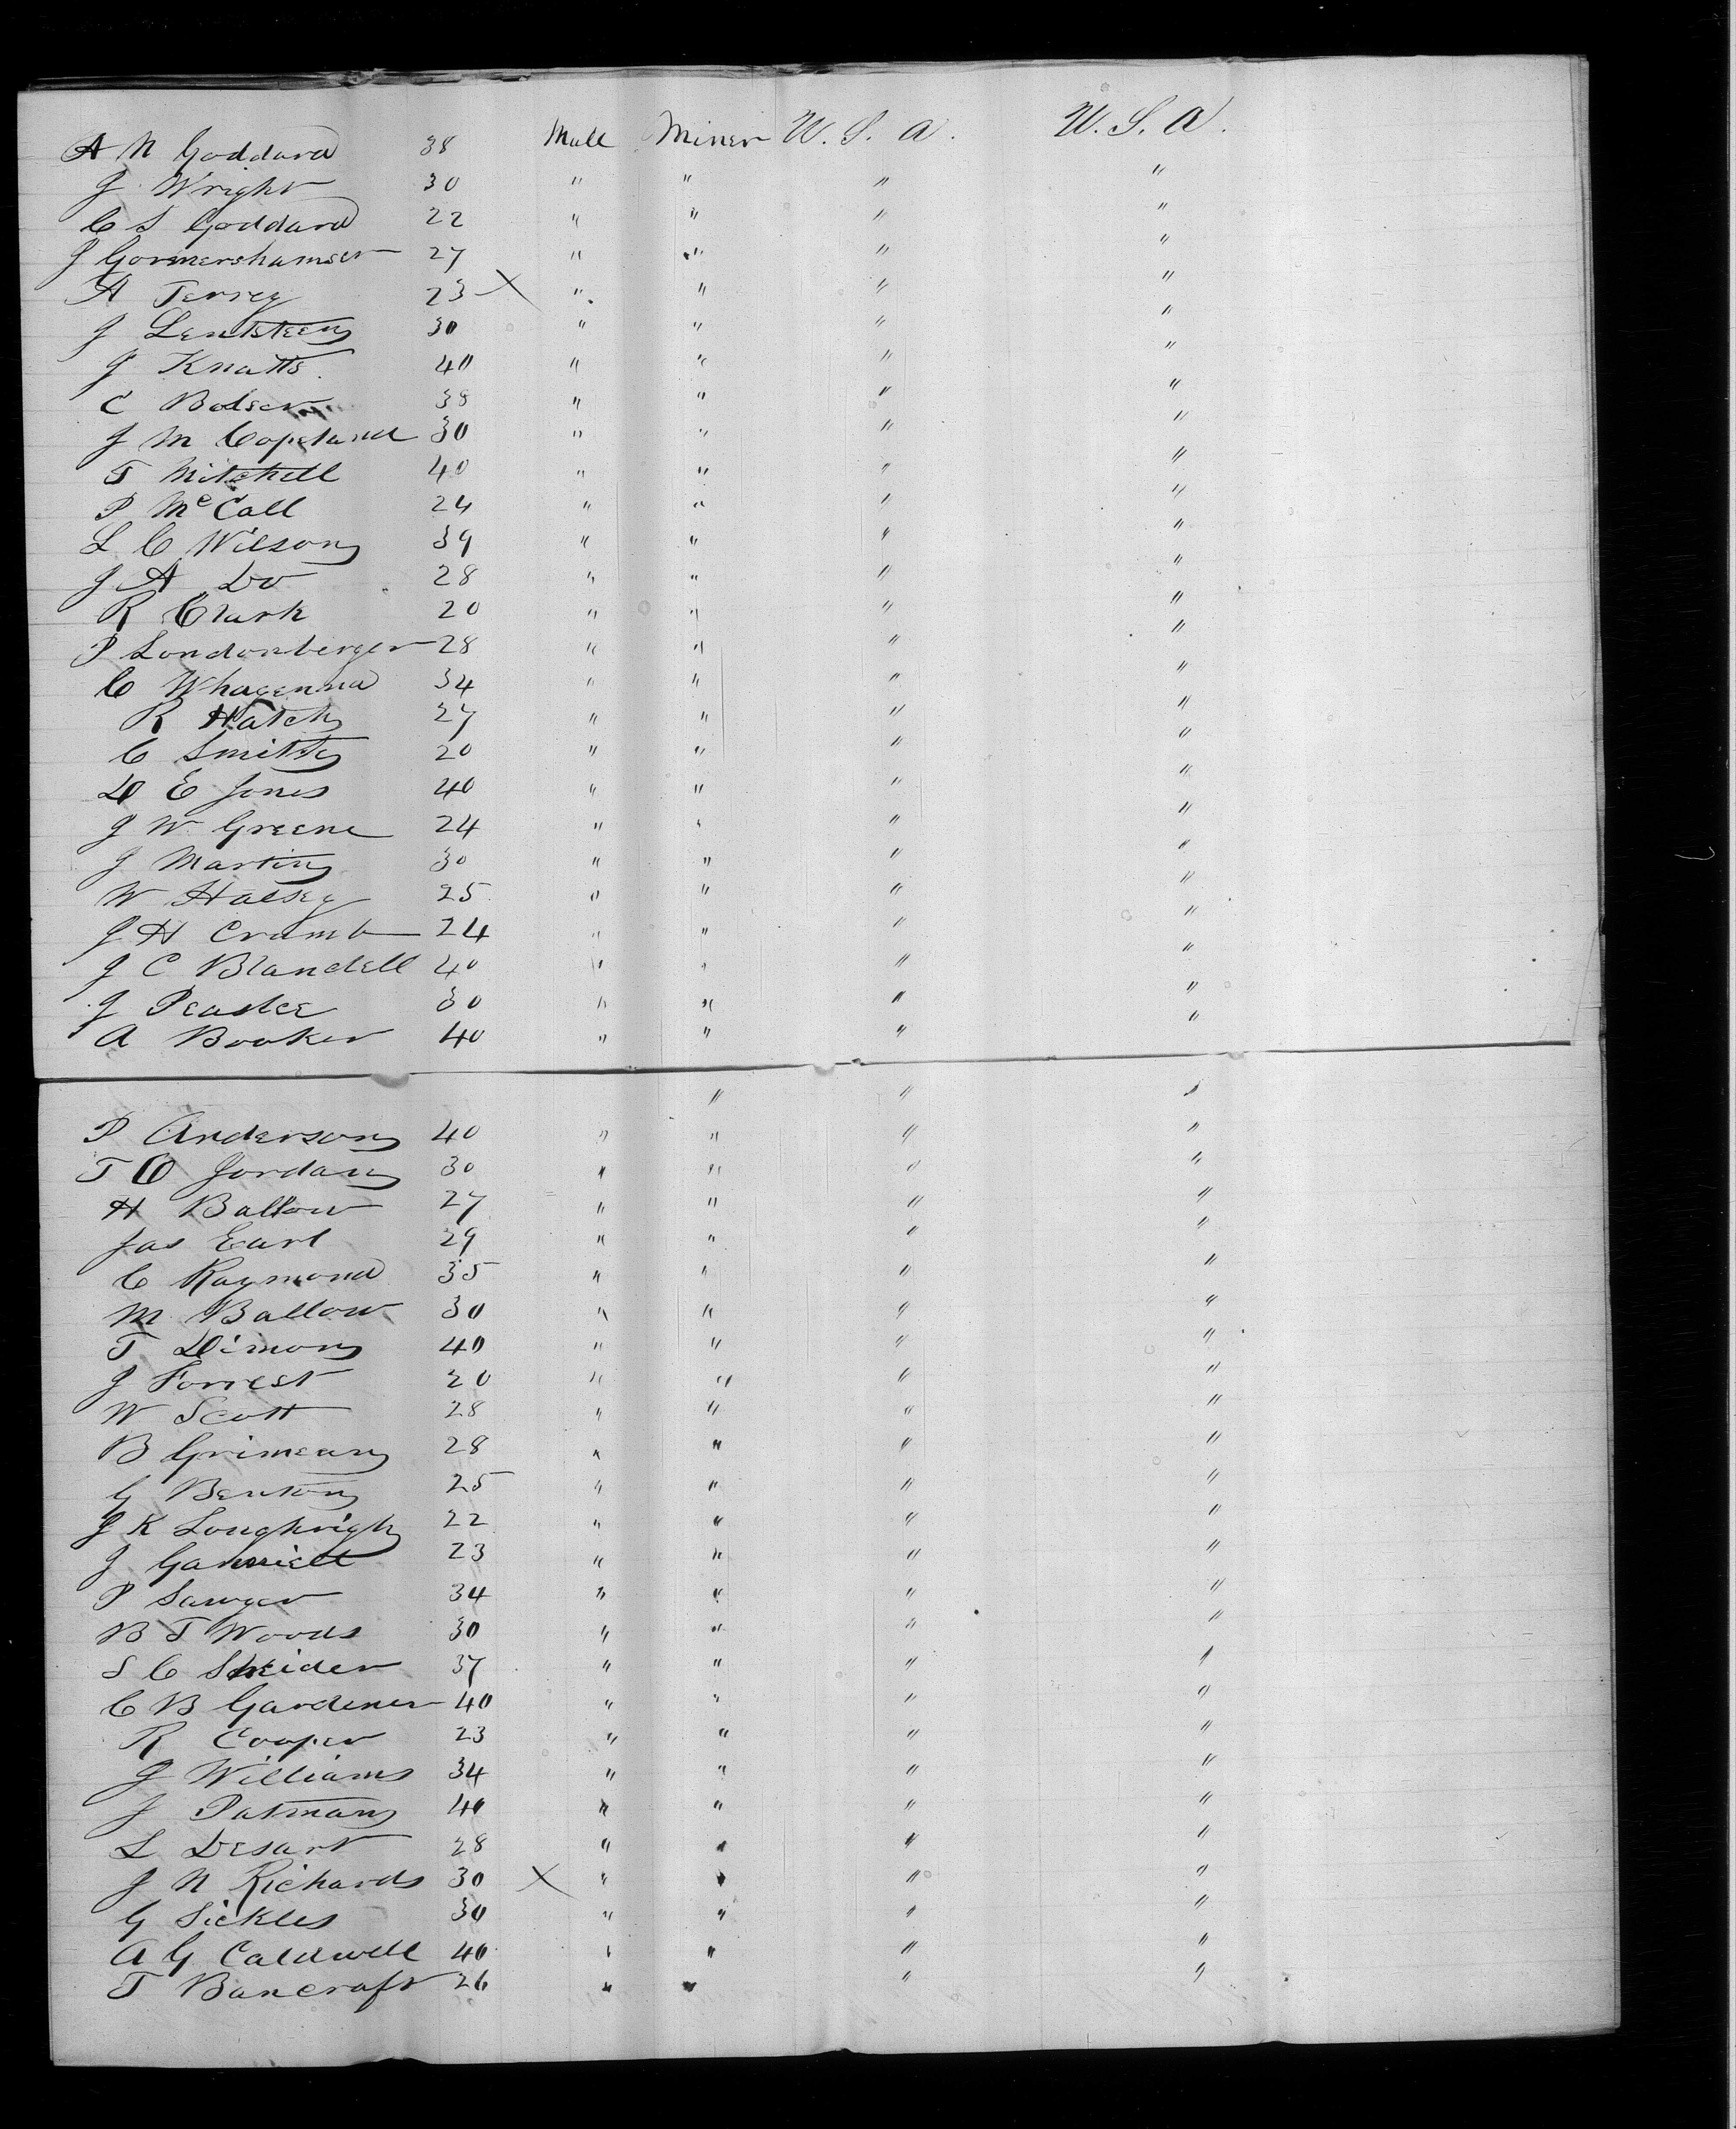 A N Goddard 38 Male Miner U. S. A. U. S. A.
J Wright 30 " " " "
C S Goddard 22 " " " "
J Gormershamser 27 " " " "
A Terrey 23 X " " " "
J Lentsteen 30 " " " "
J Knatts 40 " " " "
C Bolser 38 " " " "
J M Copeland 30 " " " "
T Mitchell 40 " " " "
P McCall 24 " " " "
L C Wilson 39 " " " "
J A Do 28 " " " "
R Clark 20 " " " "
P Londonberger 28 " " " "
C Whagenna 34 " " " "
R Hatch 27 " " " "
C Smith 20 " " " "
D E Jones 40 " " " "
J W Greene 24 " " " "
J Martin 30 " " " "
W Halsey 25 " " " "
J H Cramb 24 " " " "
J C Blandell 40 " " " "
J Peaslee 30 " " " "
A Booker 40 " " " "
" " "
P Anderson 40 " " " "
T O Jordan 30 " " " "
H Ballow 27 " " " "
Jas Earl 29 " " " "
C Raymond 35 " " " "
M Ballow 30 " " " "
T Dimon 40 " " " "
J Forrest 20 " " " "
W Scott 28 " " " "
B Grimean 28 " " " "
G Benton 25 " " " "
J K Loughrigh 22 " " " "
J 23 " " " "
P Sawyer 34 " " " "
B T Woods 30 " " " "
S C Sneider 37 " " " "
C B Gardener 40 " " " "
R Cooper 23 " " " "
J Williams 34 " " " "
J Patman 40 " " " "
L Desart 28 " " " "
J N Richards 30 X " " " "
G Sickles 30 " " " "
A G Caldwell 40 " " " "
T Bancraft 26 " " " "